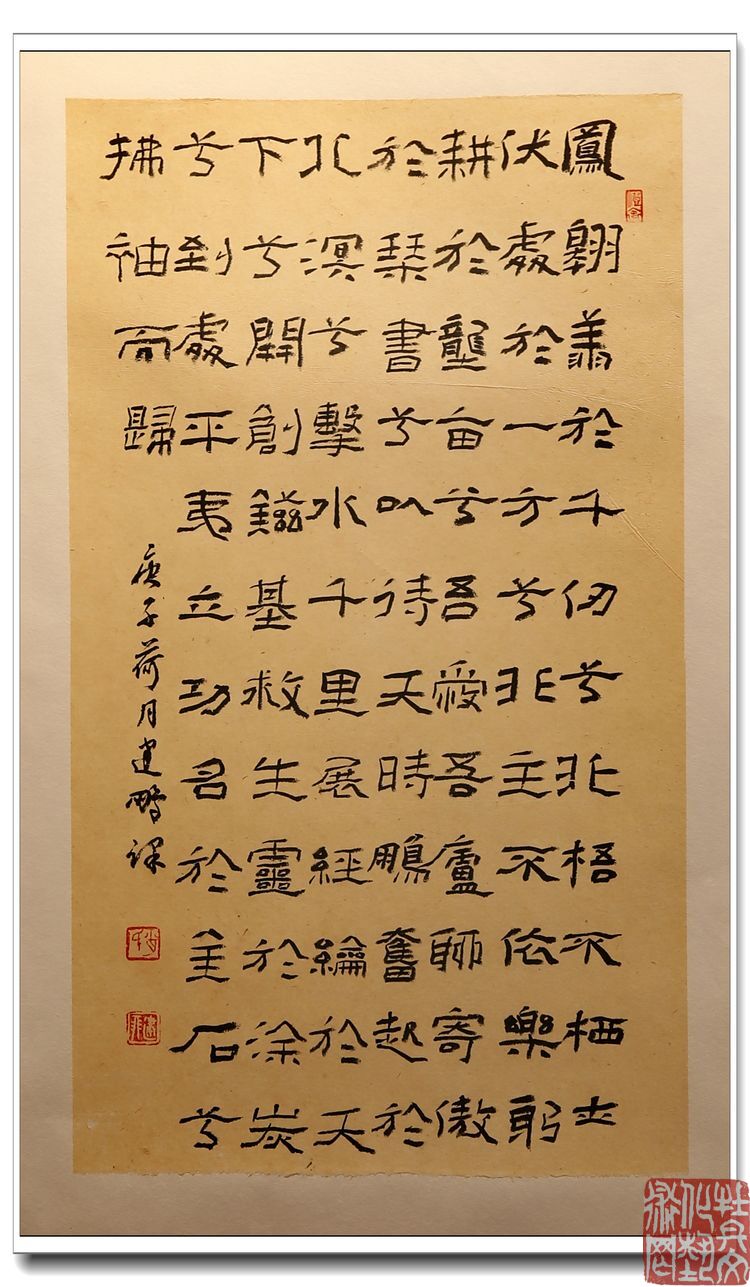 鳳翱翔於千仞兮非梧不栖士
伏處於一方兮非主不依樂躬
耕於壟亩兮吾愛吾廬聊寄傲
於琴書兮以待天時鵬奮起於
北溟兮擊水千里展經綸於天
下兮開創鎡基救生靈於涂炭
兮到處平夷立功名於金石兮
拂袖而歸
庚子荷月建鵬
牡丹文化藝術网